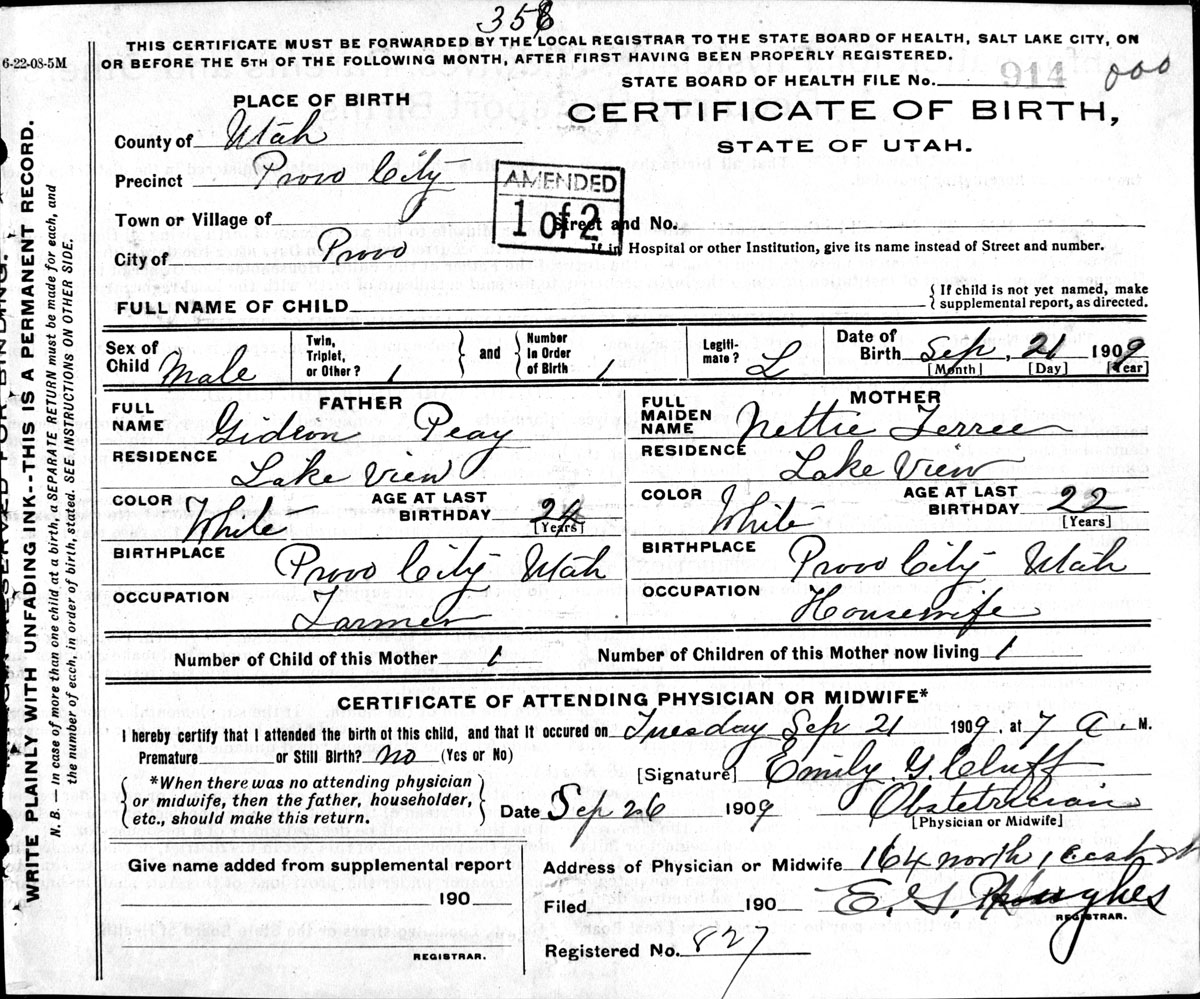 358
THIS CERTIFICATE MUST BE FORWARDED BY THE LOCAL REGISTRAR TO THE STATE BOARD OF HEALTH, SALT LAKE CITY, ON
6-22-08-5M
OR BEFORE THE 5TH OF THE FOLLOWING MONTH, AFTER FIRST HAVING BEEN PROPERLY REGISTERED.
STATE BOARD OF HEALTH FILE No. 914 000
PLACE OF BIRTH
CERTIFICATE OF BIRTH,
STATE OF UTAH.
County of Utah
Precinct Provo City
AMENDED
1 of 2
Town or Village of Street and No.
If in Hospital or other Institution, give its name instead of Street and number.
City of Provo
FULL NAME OF CHILD
If child is not yet named, make
supplemental report, as directed.
Sex of Child Male
Twin, Triplet, or Other? 1
and
Number In Order of Birth 1
Legiti-mate? L
Date of Birth Sep. 21 1909
[Month] [Day] [Year]
FATHER
FULL NAME Gideon Peay
RESIDENCE Lake View
COLOR White
AGE AT LAST BIRTHDAY 24
[Years]
BIRTHPLACE Provo City Utah
OCCUPATION Farmer
MOTHER
FULL MAIDEN NAME Nettie Ferree
RESIDENCE Lake View
COLOR White
AGE AT LAST BIRTHDAY 22
[Years]
BIRTHPLACE Provo City Utah
OCCUPATION Housewife
Number of Child of this Mother 1 Number of Children of this Mother now living 1
CERTIFICATE OF ATTENDING PHYSICIAN OR MIDWIFE*
I hereby certify that I attended the birth of this child, and that it occured on Tuesday Sep 21 1909, at 7 A. M.
Premature or Still Birth? no (Yes or No)
[Signature] Emily G. Cluff
*When there was no attending physician
or midwife, then the father, householder,
etc., should make this return.
Date Sep 26 1909
Obstetrician
[Physician or Midwife]
Give name added from supplemental report
190
REGISTRAR.
Address of Physician or Midwife 164 north 1 east st
Filed 190 E. G. Hughes
REGISTRAR.
Registered No. 827
WRITE PLAINLY WITH UNFADING INK--THIS IS A PERMANENT RECORD.
N. B.—In case of more than one child at a birth, a SEPARATE RETURN must be made for each, and
the number of each, in order of birth, stated. SEE INSTRUCTIONS ON OTHER SIDE.